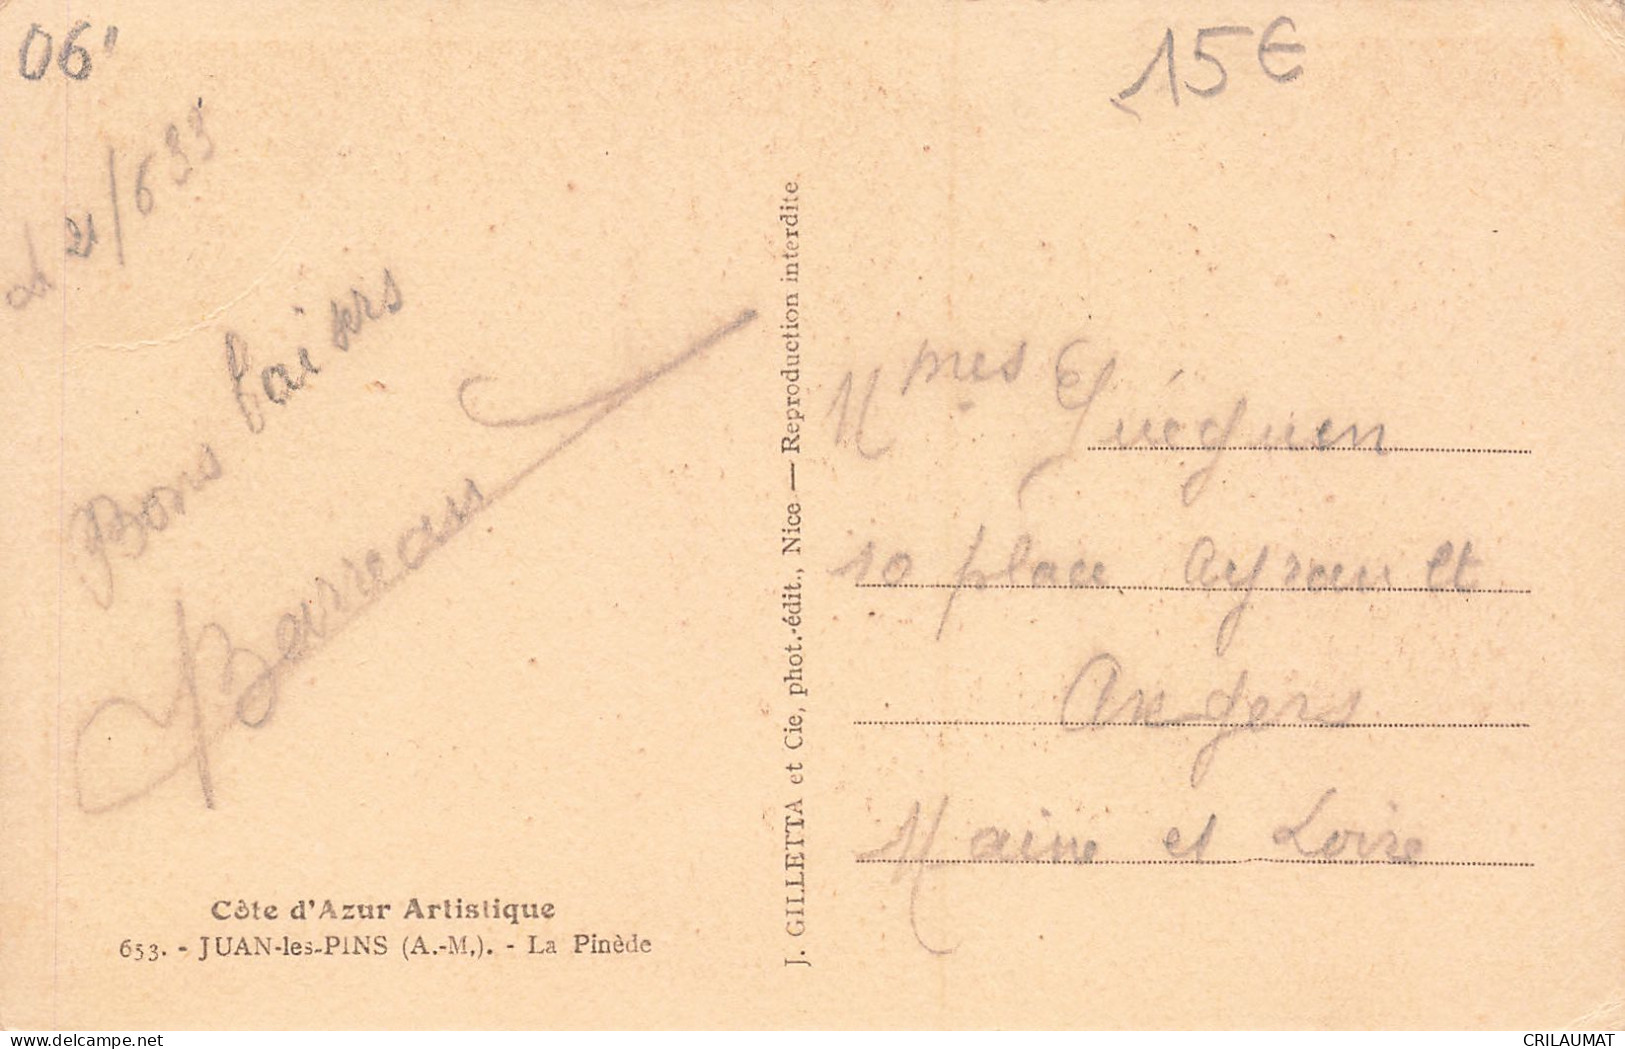 06
15€
Le 21/6 33
Bons baisers
Barreau
Côte d'Azur Artistique
653. - JUAN-les-PINS (A.-M.). - La Pinède
J. GILLETTA et Cie, phot.-édit., Nice — Reproduction interdite
Mmes Guéguen
10 place Ayrault
Angers
Maine et Loire
delcampe.net
CRILAUMAT